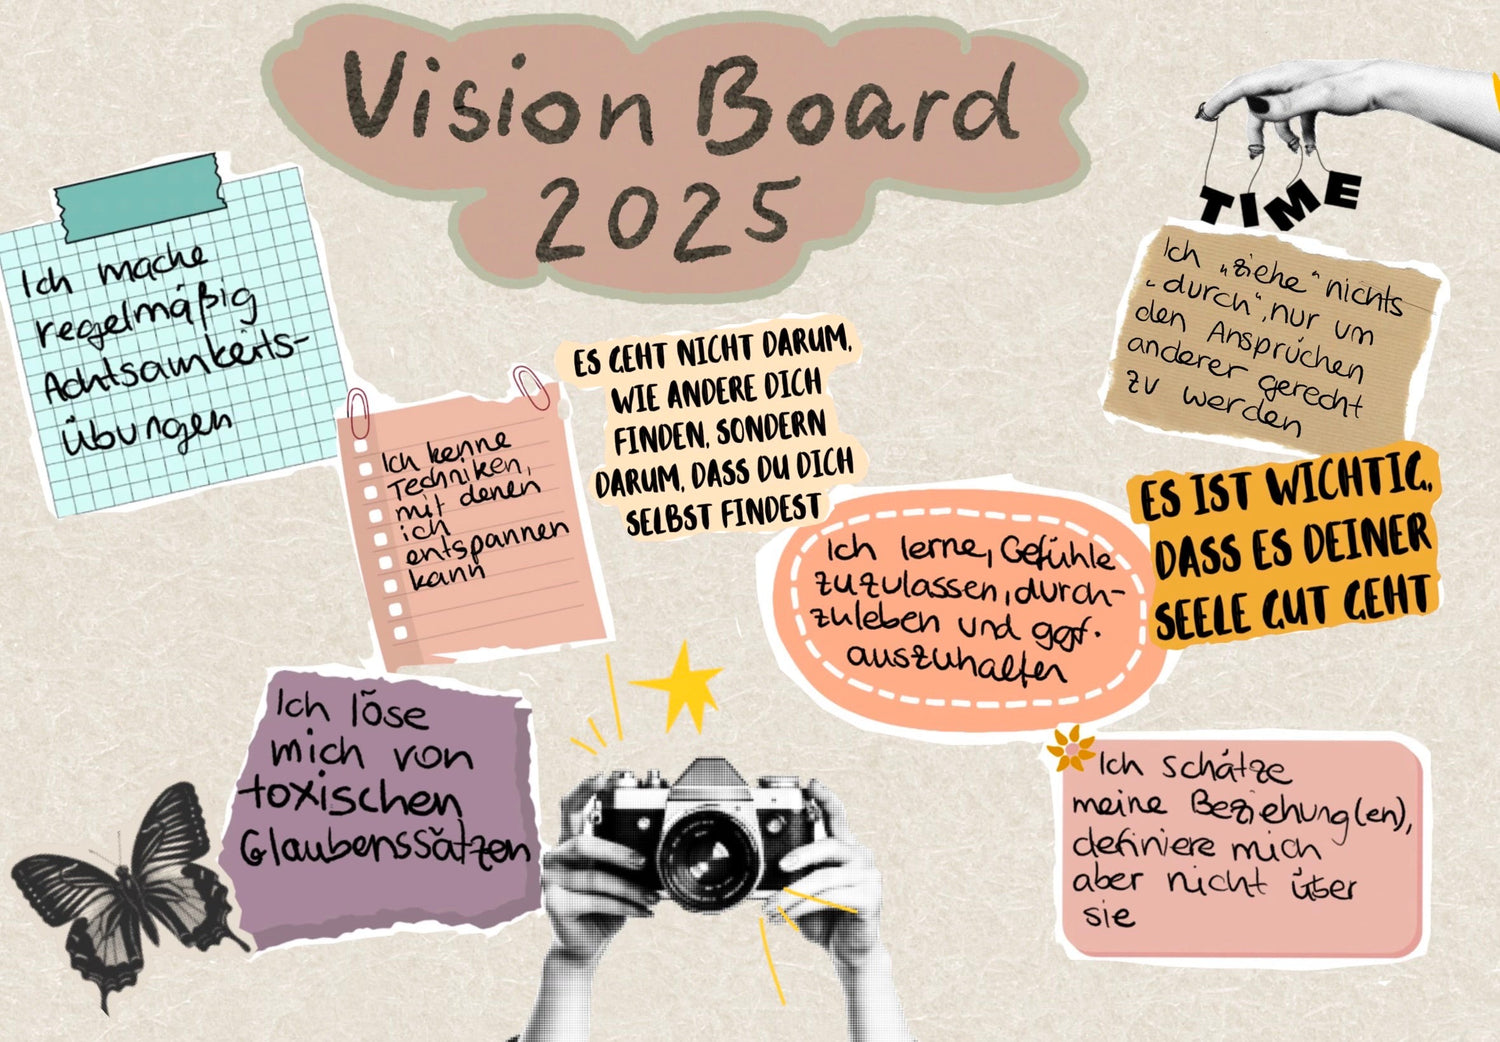 Vision Board
2025
TIME
Ich mache
regelmäßig
Achtsamkeits-
übungen
Ich kenne
Techniken,
mit denen
ich
entspannen
kann
ES GEHT NICHT DARUM,
WIE ANDERE DICH
FINDEN, SONDERN
DARUM, DASS DU DICH
SELBST FINDEST
Ich „ziehe“ nichts
„durch“, nur um
den Ansprüchen
anderer gerecht
zu werden
Ich lerne, Gefühle
zuzulassen, durch-
zuleben und ggf.
auszuhalten
ES IST WICHTIG,
DASS ES DEINER
SEELE GUT GEHT
Ich löse
mich von
toxischen
Glaubenssätzen
Ich schätze
meine Beziehung(en),
definiere mich
aber nicht über
sie